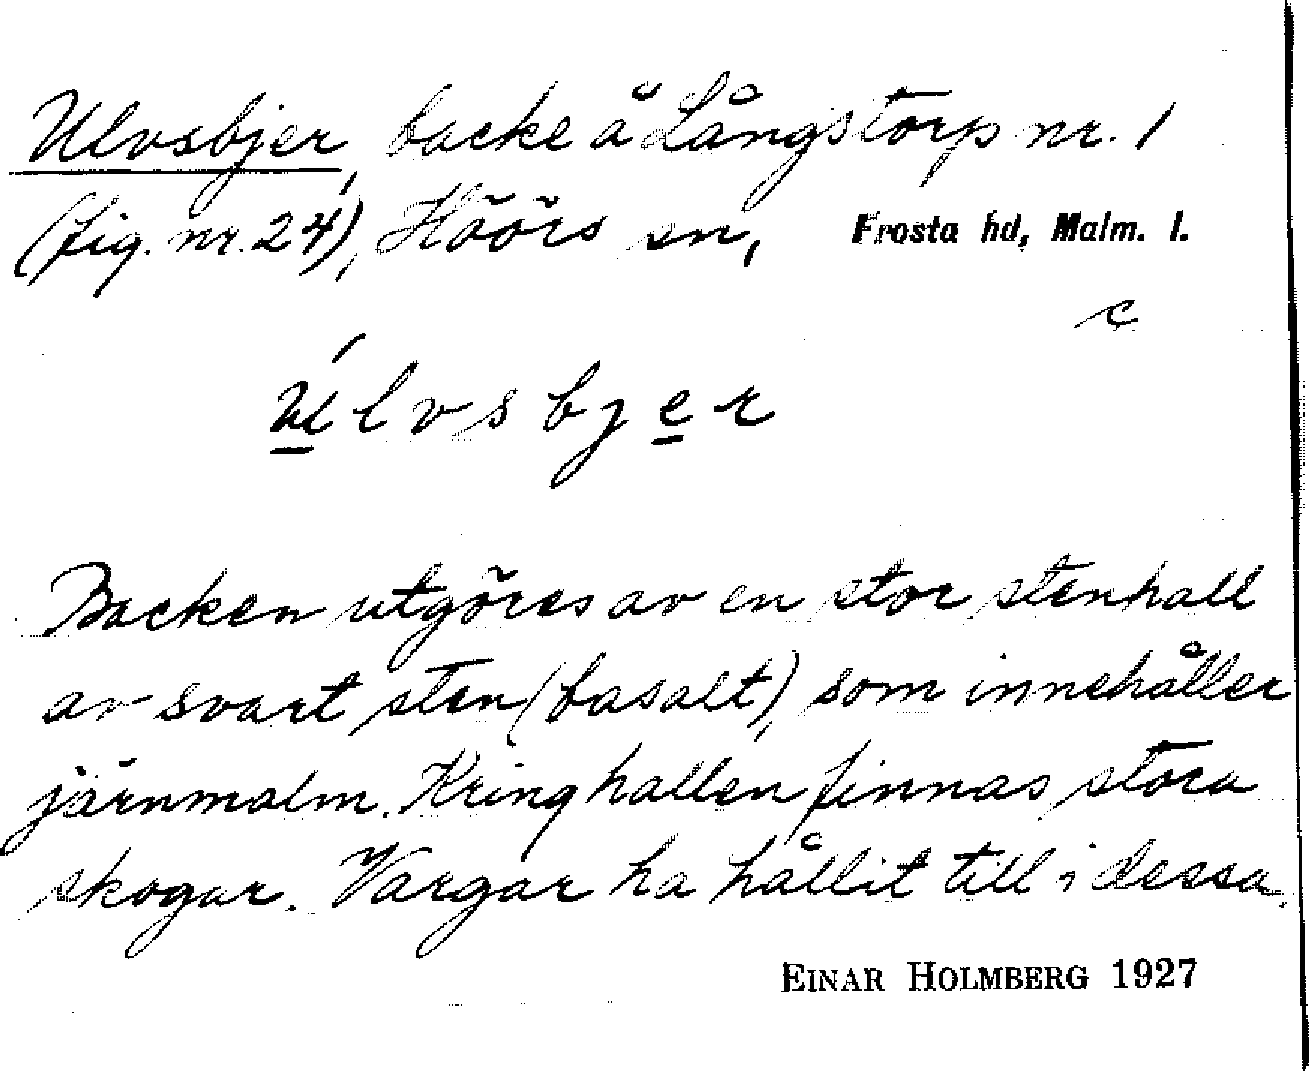 Ulvsbjer, backe å Långstorp nr. 1
(fig. nr. 24), Höörs sn, Frosta hd, Malm. l.
c
úlvsbjer
Backen utgöres av en stor stenhall
av svart sten (basalt), som innehåller
järnmalm. Kring hallen finnas stora
skogar. Vargar ha hållit till i dessa.
EINAR HOLMBERG 1927